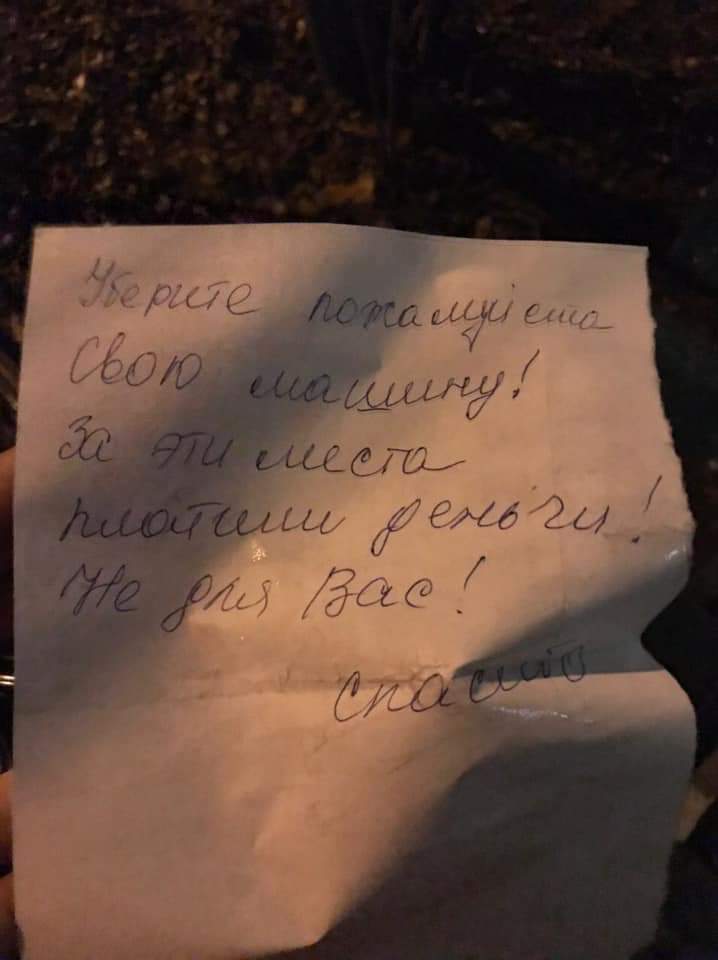 Уберите пожалуйста
Свою машину!
За эти места
платили деньги!
Не для Вас!
спасибо